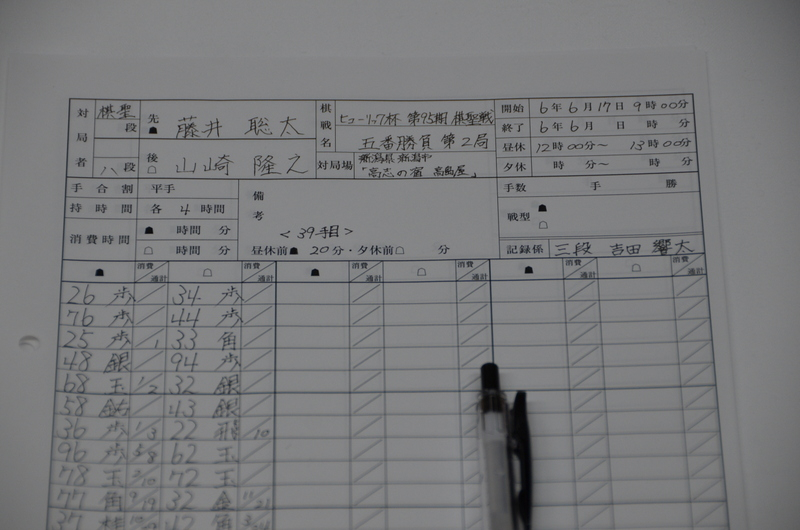 対局者 棋聖 段 先 藤井 聡太
八段 後 山崎 隆之
棋戦名 ヒューリック杯 第95期 棋聖戦
五番勝負 第2局
対局場 新潟県新潟市
「高志の宿 高島屋」
開始 6年6月17日9時00分
終了 6年6月 日 時 分
昼休 12時00分〜 13時00分
夕休 時 分〜 時 分
手合割 平手
持時間 各 4 時間
消費時間 時間 分
時間 分
備考
<39手目>
昼休前 20分・夕休前 分
手数 手 勝
戦型
記録係 三段 吉田 響太
消費 通計 消費 通計 消費 通計 消費 通計 消費 通計 消費 通計
26 歩 34 歩
76 歩 44 歩
25 歩 1 33 角
48 銀 94 歩
68 玉 1/2 32 銀
58 43 銀
36 歩 1/3 22 飛 /10
96 歩 62 玉
78 玉 72 玉
77 角 9/19 32 金 11/21
37 桂 42 角